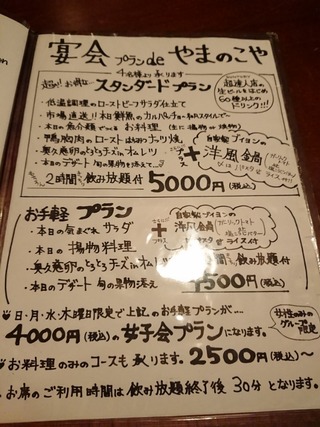 宴会 プラン de やまのこや
4名様より承ります
超お得な スタンダードプラン
・低温調理のローストビーフサラダ仕立て
・市場直送!!本日鮮魚のカルパッチョ
・本日魚介類でつくる お料理
・鴨胸肉のロースト はちみつナッツ焼
・奥久慈卵のとろとろチーズinオムレツ
・本日のデザート 旬の果物を添えて
2時間 飲み放題付 5000円(税込)
超達人店の
生ビールをはじめ
60種以上の
ドリンク!!
自家製ブイヨンの
+ 洋風鍋
ライス付
お手軽 プラン
・本日の気まぐれ サラダ
・本日の 揚物料理
・奥久慈卵のとろとろチーズinオムレツ
・本日デザート 旬の果物添え
自家製ブイヨンの
+ 洋風鍋
ライス付
時間 飲み放題付
4500円(税込)
日・月・水・木曜日限定で上記のお手軽プランが…
4000円(税込)の女子会プランになります。
女性のみの
グループ限定
お料理のみのコースも承ります。2500円(税込)〜
お席のご利用時間は飲み放題終了後30分となります。